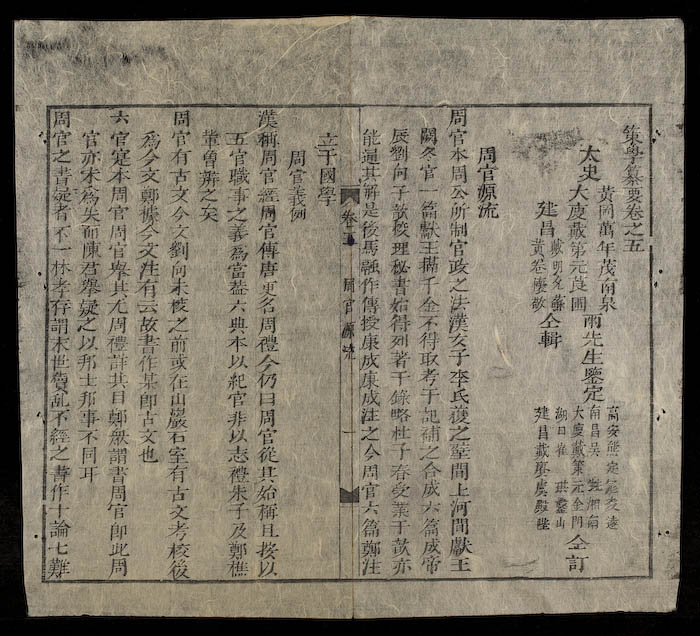 策學纂要卷之五
黃岡萬年茂南泉
太史
大庾戴第元莨圃
兩先生鑒定
戴朋
建昌
黃
仝輯
高安熊定
南昌吳
大庾戴策元金門
湖口崔
建昌戴
仝訂
周官源流
周官本周公所制官政之法漢女子李氏護之壁間上河間獻王
闕冬官一篇獻王購千金不得取考工記補之合成六篇成帝
辰劉向子歆校理秘書始得列著于錄略杜子春受業于歆亦
能通其解是後馬融作傳授康成康成注之今周官六篇鄭注
立于國學
周官義例
漢稱周官經周官傳唐更名周禮今仍曰周官從其始稱且按以
五官職事之義為當葢六典本以紀官非以志禮朱子及鄭樵
輩曾辨之矣
周官有古文今文劉向未校之前或在山巖石室有古文考校後
為今文鄭據今文注有云故書作某即古文也
六官寔本周官周官舉其凡周禮詳其目鄭衆謂書周官即此周
官亦未為失而陳君舉疑之以邦士邦事不同耳
周官之書疑者不一林孝存謂末世瀆亂不經之書作十論七難
卷五
周官源流
一